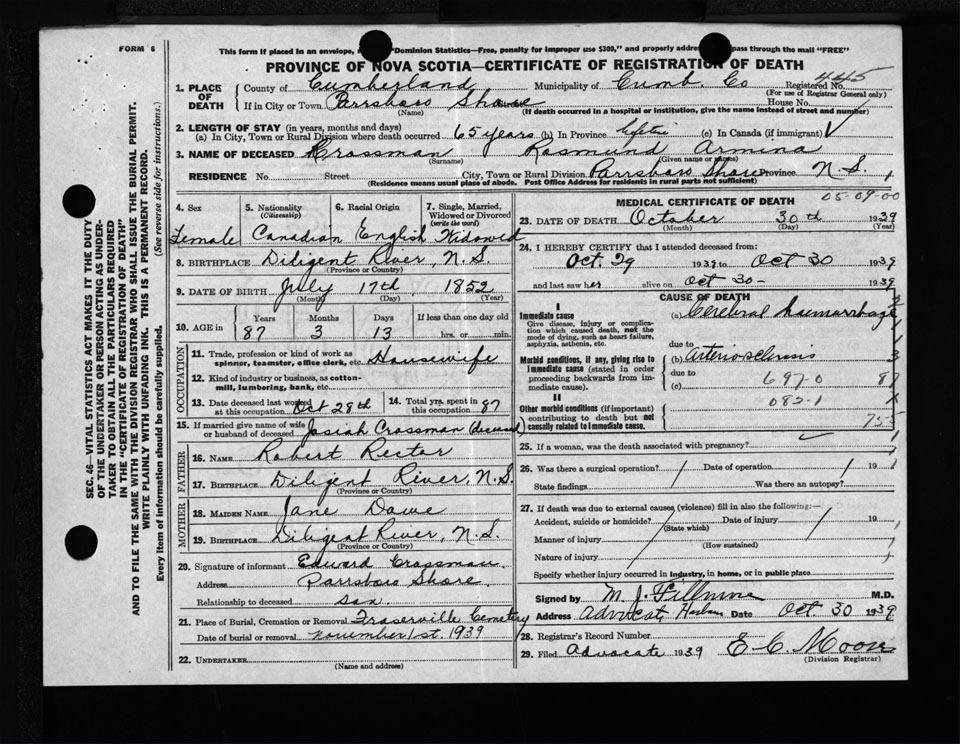 FORM 6
This form if placed in an envelope, "Dominion Statistics—Free, penalty for improper use $300," and properly addre pass through the mail "FREE"
PROVINCE OF NOVA SCOTIA—CERTIFICATE OF REGISTRATION OF DEATH
445
1. PLACE OF DEATH County of Cumberland Municipality of Cumb. Co Registered No.
(For use of Registrar General only)
If in City or Town Parrsboro Shore House No.
(Name) (If death occurred in a hospital or institution, give the name instead of street and number)
2. LENGTH OF STAY (in years, months and days)
(a) In City, Town or Rural Division where death occurred 65 years (b) In Province lifetime (c) In Canada (if immigrant)
3. NAME OF DECEASED Crossman Rosmund Armina
(Surname) (Given name or names)
RESIDENCE No. Street City, Town or Rural Division Parrsboro Shore Province N.S.
(Residence means usual place of abode. Post Office Address for residents in rural parts not sufficient)
4. Sex 5. Nationality (Citizenship) 6. Racial Origin 7. Single, Married, Widowed or Divorced (write the word)
Female Canadian English Widowed
8. BIRTHPLACE Diligent River, N.S.
(Province or Country)
9. DATE OF BIRTH July 17th 1852
(Month) (Day) (Year)
10. AGE in Years Months Days If less than one day old
87 3 13 hrs. or min.
OCCUPATION
11. Trade, profession or kind of work as spinner, teamster, office clerk, etc. Housewife
12. Kind of industry or business, as cotton-mill, lumbering, bank, etc.
13. Date deceased last worked at this occupation Oct 28th 14. Total yrs. spent in this occupation 87
15. If married give name of wife or husband of deceased Josiah Crossman (deceased)
FATHER
16. NAME Robert Rector
17. BIRTHPLACE Diligent River, N.S.
(Province or Country)
MOTHER
18. MAIDEN NAME Jane Dowe
19. BIRTHPLACE Diligent River, N.S.
(Province or Country)
20. Signature of informant Edward Crossman
Address Parrsboro Shore.
Relationship to deceased son.
21. Place of Burial, Cremation or Removal Fraserville Cemetery
Date of burial or removal November 1st. 1939
22. UNDERTAKER
(Name and address)
05-09-00
MEDICAL CERTIFICATE OF DEATH
23. DATE OF DEATH October 30th 1939
(Month) (Day) (Year)
24. I HEREBY CERTIFY that I attended deceased from:
Oct. 29 1939 to Oct 30 1939
and last saw her alive on Oct 30- 1939
CAUSE OF DEATH
I
Immediate cause (a) Cerebral haemorrhage
Give disease, injury or complication which caused death, not the mode of dying, such as heart failure, asphyxia, asthenia, etc.
due to
Morbid conditions, if any, giving rise to immediate cause (stated in order proceeding backwards from immediate cause). (b) Arteriosclerosis
due to
(c) 697-0 87
II 082-1
Other morbid conditions (if important) contributing to death but not causally related to immediate cause.
25. If a woman, was the death associated with pregnancy?
26. Was there a surgical operation? Date of operation 19
State findings Was there an autopsy?
27. If death was due to external causes (violence) fill in also the following:—
Accident, suicide or homicide? Date of injury 19
(State which)
Manner of injury
(How sustained)
Nature of injury
Specify whether injury occurred in industry, in home, or in public place
Signed by M. J. Fillmore M.D.
Address Advocate Harbour Date Oct. 30 1939
28. Registrar's Record Number
29. Filed Advocate 1939 E. C. Moore
(Division Registrar)
SEC. 46—VITAL STATISTICS ACT MAKES IT THE DUTY
OF THE UNDERTAKER OR PERSON ACTING AS UNDER-
TAKER TO OBTAIN ALL THE PARTICULARS REQUIRED
IN THE "CERTIFICATE OF REGISTRATION OF DEATH"
AND TO FILE THE SAME WITH THE DIVISION REGISTRAR WHO SHALL ISSUE THE BURIAL PERMIT.
WRITE PLAINLY WITH UNFADING INK. THIS IS A PERMANENT RECORD.
Every item of information should be carefully supplied. (See reverse side for instructions.)